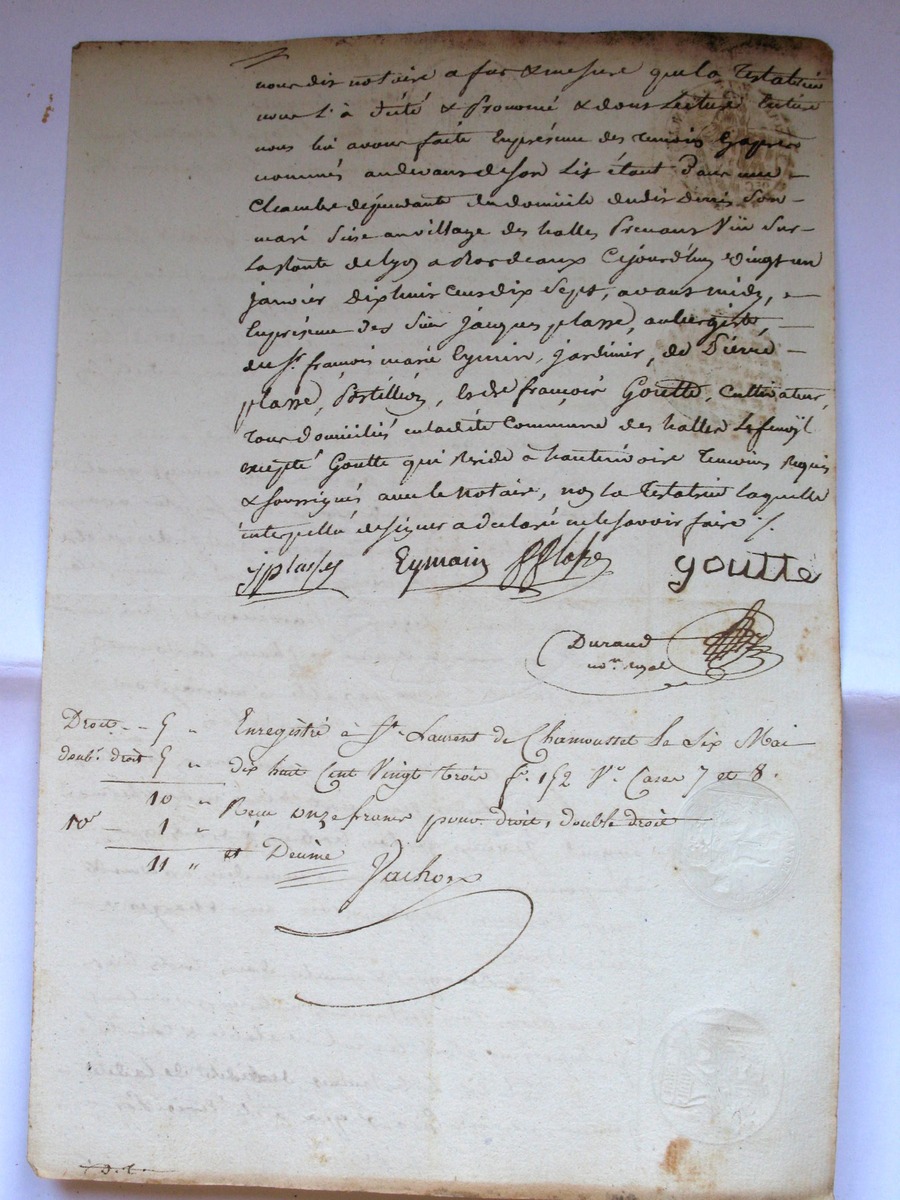 nous dit notaire a fur & mesure que la Testatrice
nous l'à dicté & Prononcé & dont Lecture Entière
nous lui avons faite En présence des temoins Cy après
nommés au devant de son Lit étant dans une
Chambre dépendante du domicile dudit Denis son
mari Sise au village des halles Prenant Vüe sur
La Route de Lyon a Bordeaux Cejourd'huy vingt un
janvier dix huit cens dix sept, avant midy,
En présence des Sieurs Jacques plasse, aubergiste,
du Sr. françois marie Eymin, jardinier, de Pierre
plasse, Postillion, & de françois Goutte, Cultivateur,
Tous domiciliés en ladite Commune des halles Lefenoÿl
excepté Goutte qui Reside à hauterivoire Temoins Requis
& soussignés avec le Notaire, non la Testatrice laquelle
interpellée de signer a declaré ne le savoir faire ./.
jplasse Eymain plasse goutte
Durand
nore. royal
Droit -- 5 " Enregistré à St. Laurent de Chamousset Le Six Mai
doubl. droit 5 " dix huit Cent Vingt trois fo. 152 Vo. Cases 7 et 8.
10 " Reçu onze francs pour droit, double droit
10e - 1 "
11 " et Decime Vachon